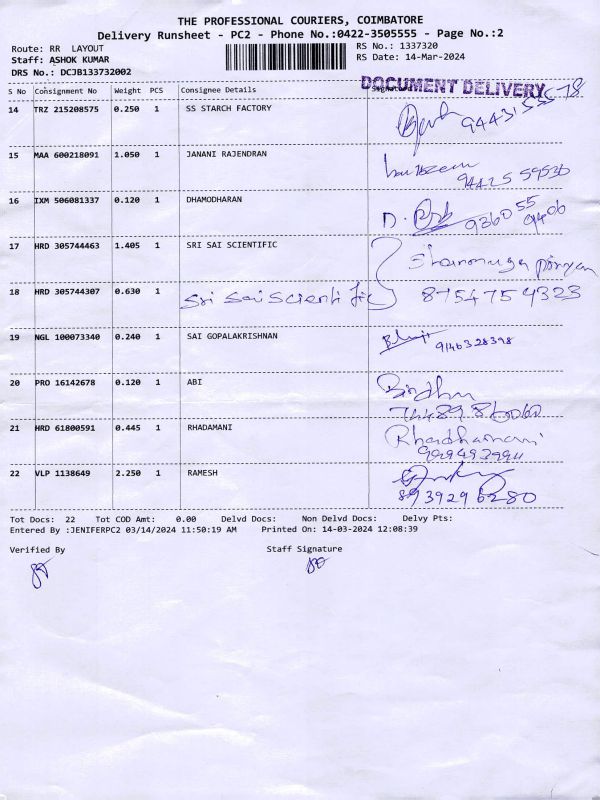 THE PROFESSIONAL COURIERS, COIMBATORE
Delivery Runsheet - PC2 - Phone No.:0422-3505555 - Page No.:2
Route: RR LAYOUT
RS No.: 1337320
Staff: ASHOK KUMAR
RS Date: 14-Mar-2024
DRS No.: DCJB133732002
DOCUMENT DELIVERY
S No Consignment No Weight PCS Consignee Details
14 TRZ 215208575 0.250 1 SS STARCH FACTORY
15 MAA 600218091 1.050 1 JANANI RAJENDRAN
16 IXM 506081337 0.120 1 DHAMODHARAN
D.
17 HRD 305744463 1.405 1 SRI SAI SCIENTIFIC
18 HRD 305744307 0.630 1 Sri Sai Scientific 8754754323
19 NGL 100073340 0.240 1 SAI GOPALAKRISHNAN
9146328398
20 PRO 16142678 0.120 1 ABI Sindhu
21 HRD 61800591 0.445 1 RHADAMANI
22 VLP 1138649 2.250 1 RAMESH
8939296280
Tot Docs: 22 Tot COD Amt: 0.00 Delvd Docs: Non Delvd Docs: Delvy Pts:
Entered By :JENIFERPC2 03/14/2024 11:50:19 AM Printed On: 14-03-2024 12:08:39
Verified By Staff Signature